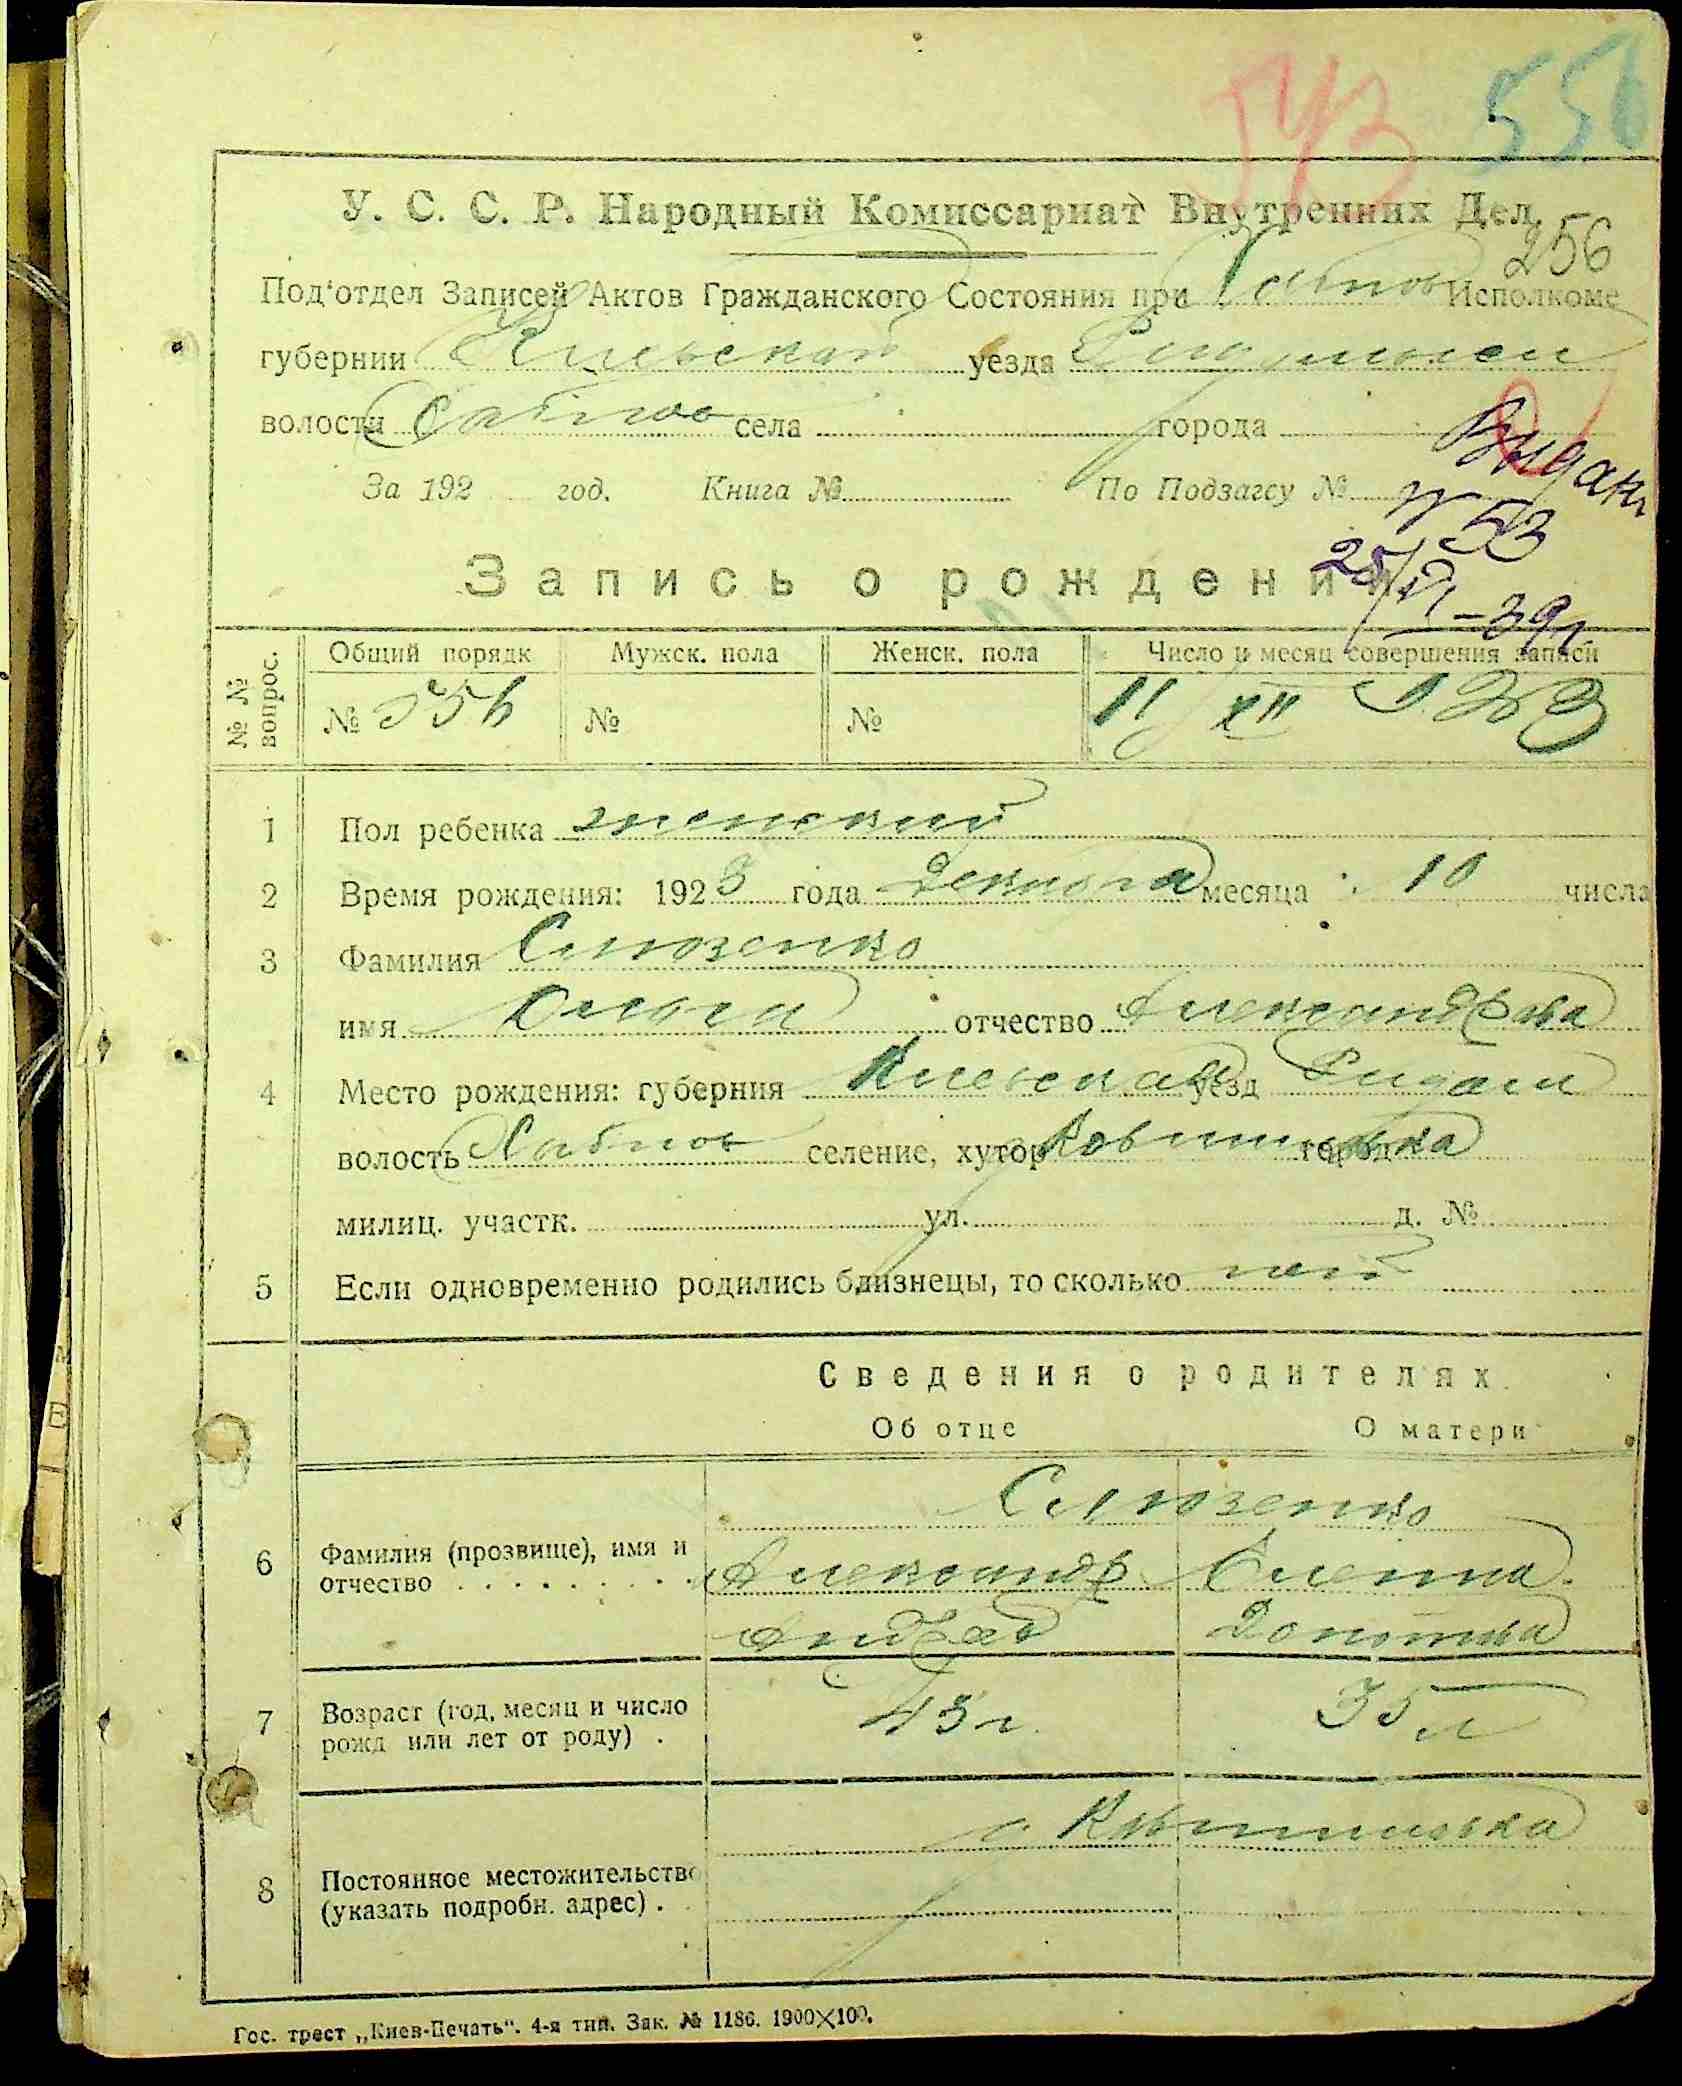 573 556
У. С. С. Р. Народный Комиссариат Внутренних Дел.
256
Под'отдел Записей Актов Гражданского Состояния при Хабнов Исполкоме
губернии Киевской уезда
волости Хабнов села города
За 192 год. Книга № По Подзагсу №
Выдан
№ 53
25/VI-39г
Запись о рождении
№ № вопрос.
Общий порядк Мужск. пола Женск. пола Число и месяц совершения записи
№ 556 № № 11/XII 923
1 Пол ребенка женский
2 Время рождения: 1923 года Декабря месяца 10 числа
3 Фамилия Слюзенко
имя Ольга отчество Александровна
4 Место рождения: губерния Киевская уезд
волость Хабнов селение, хутор город
милиц. участк. ул. д. №
5 Если одновременно родились близнецы, то сколько нет
Сведения о родителях.
Об отце О матери
Слюзенко
6 Фамилия (прозвище), имя и Александр
отчество . . . . . . . . .
7 Возраст (год, месяц и число 43 г. 35 л
рожд или лет от роду) .
8 Постоянное местожительство
(указать подробн. адрес) .
Гос. трест „Киев-Печать“. 4-я тип. Зак. № 1186. 1900×100.